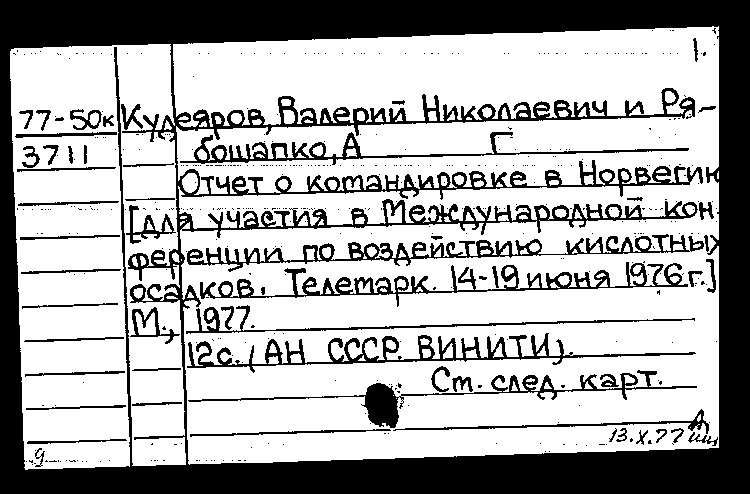 1.
77-50к Кудеяров, Валерий Николаевич и Ря-
3711 бошапко, А Г
Отчет о командировке в Норвегию
[для участия в Международной кон
ференции по воздействию кислотных
осадков. Телемарк. 14-19 июня 1976г.]
М., 1977.
12с. (АН СССР. ВИНИТИ).
Ст. след. карт.
13.X.77
g